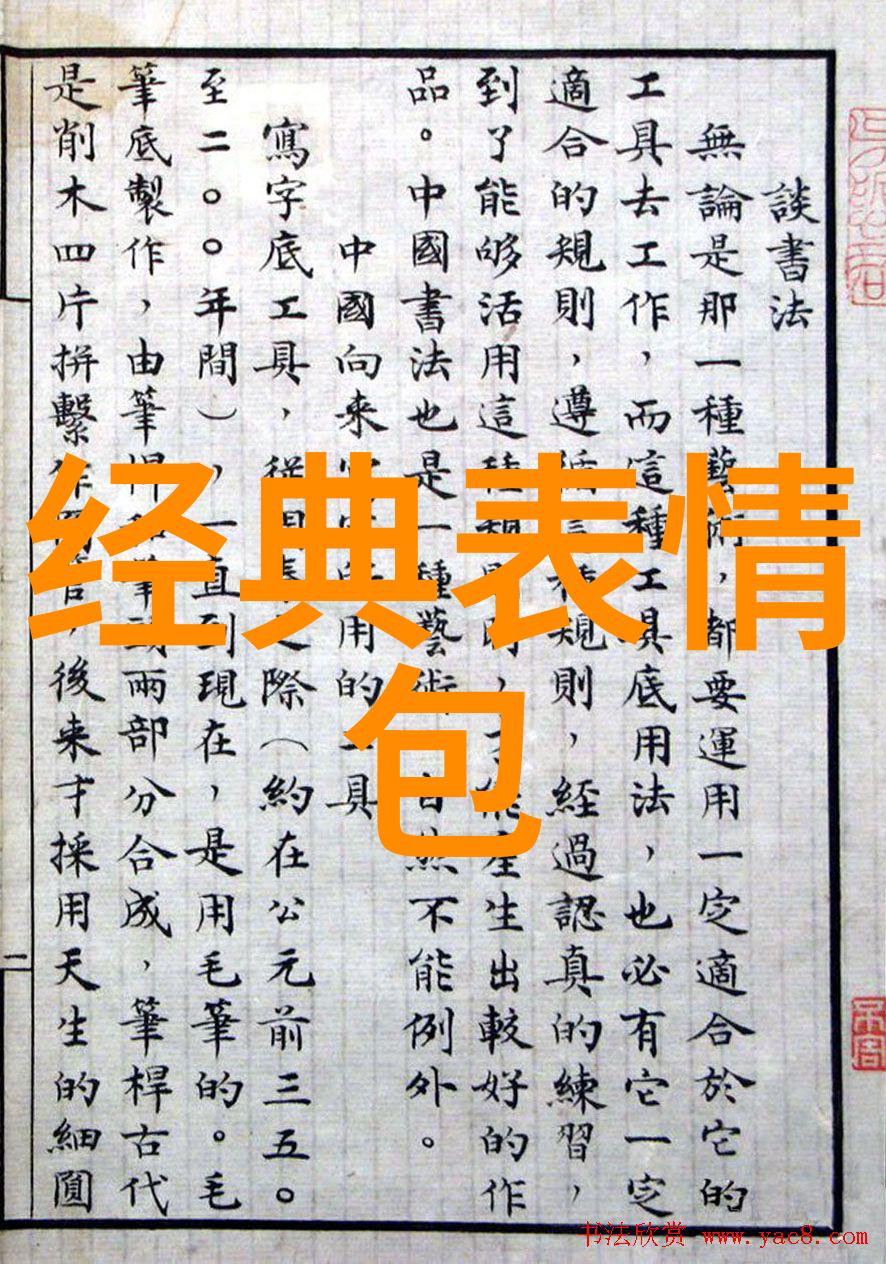 談書法
無論是那一種藝術，都要運用一定適合於它的
工具去工作，而這種工具底用法，也必有它一定
適合的規則，遵循這種規則，經過認真的練習，
到了能够活用這種規則時，才能產生出較好的作
品。中國書法也是一種藝術，自然不能例外。
中國向来用的工具
寫字底工具，從周秦之際（約在公元前三五。
至二。。年間），一直到現在，是用毛筆的。毛
筆底製作，由筆桿和筆頭兩部分合成，筆桿古代
是削木四片拼繫作管，後来才採用天生的細圓
二
经典表情
包
书法欣赏 www.yac8.com